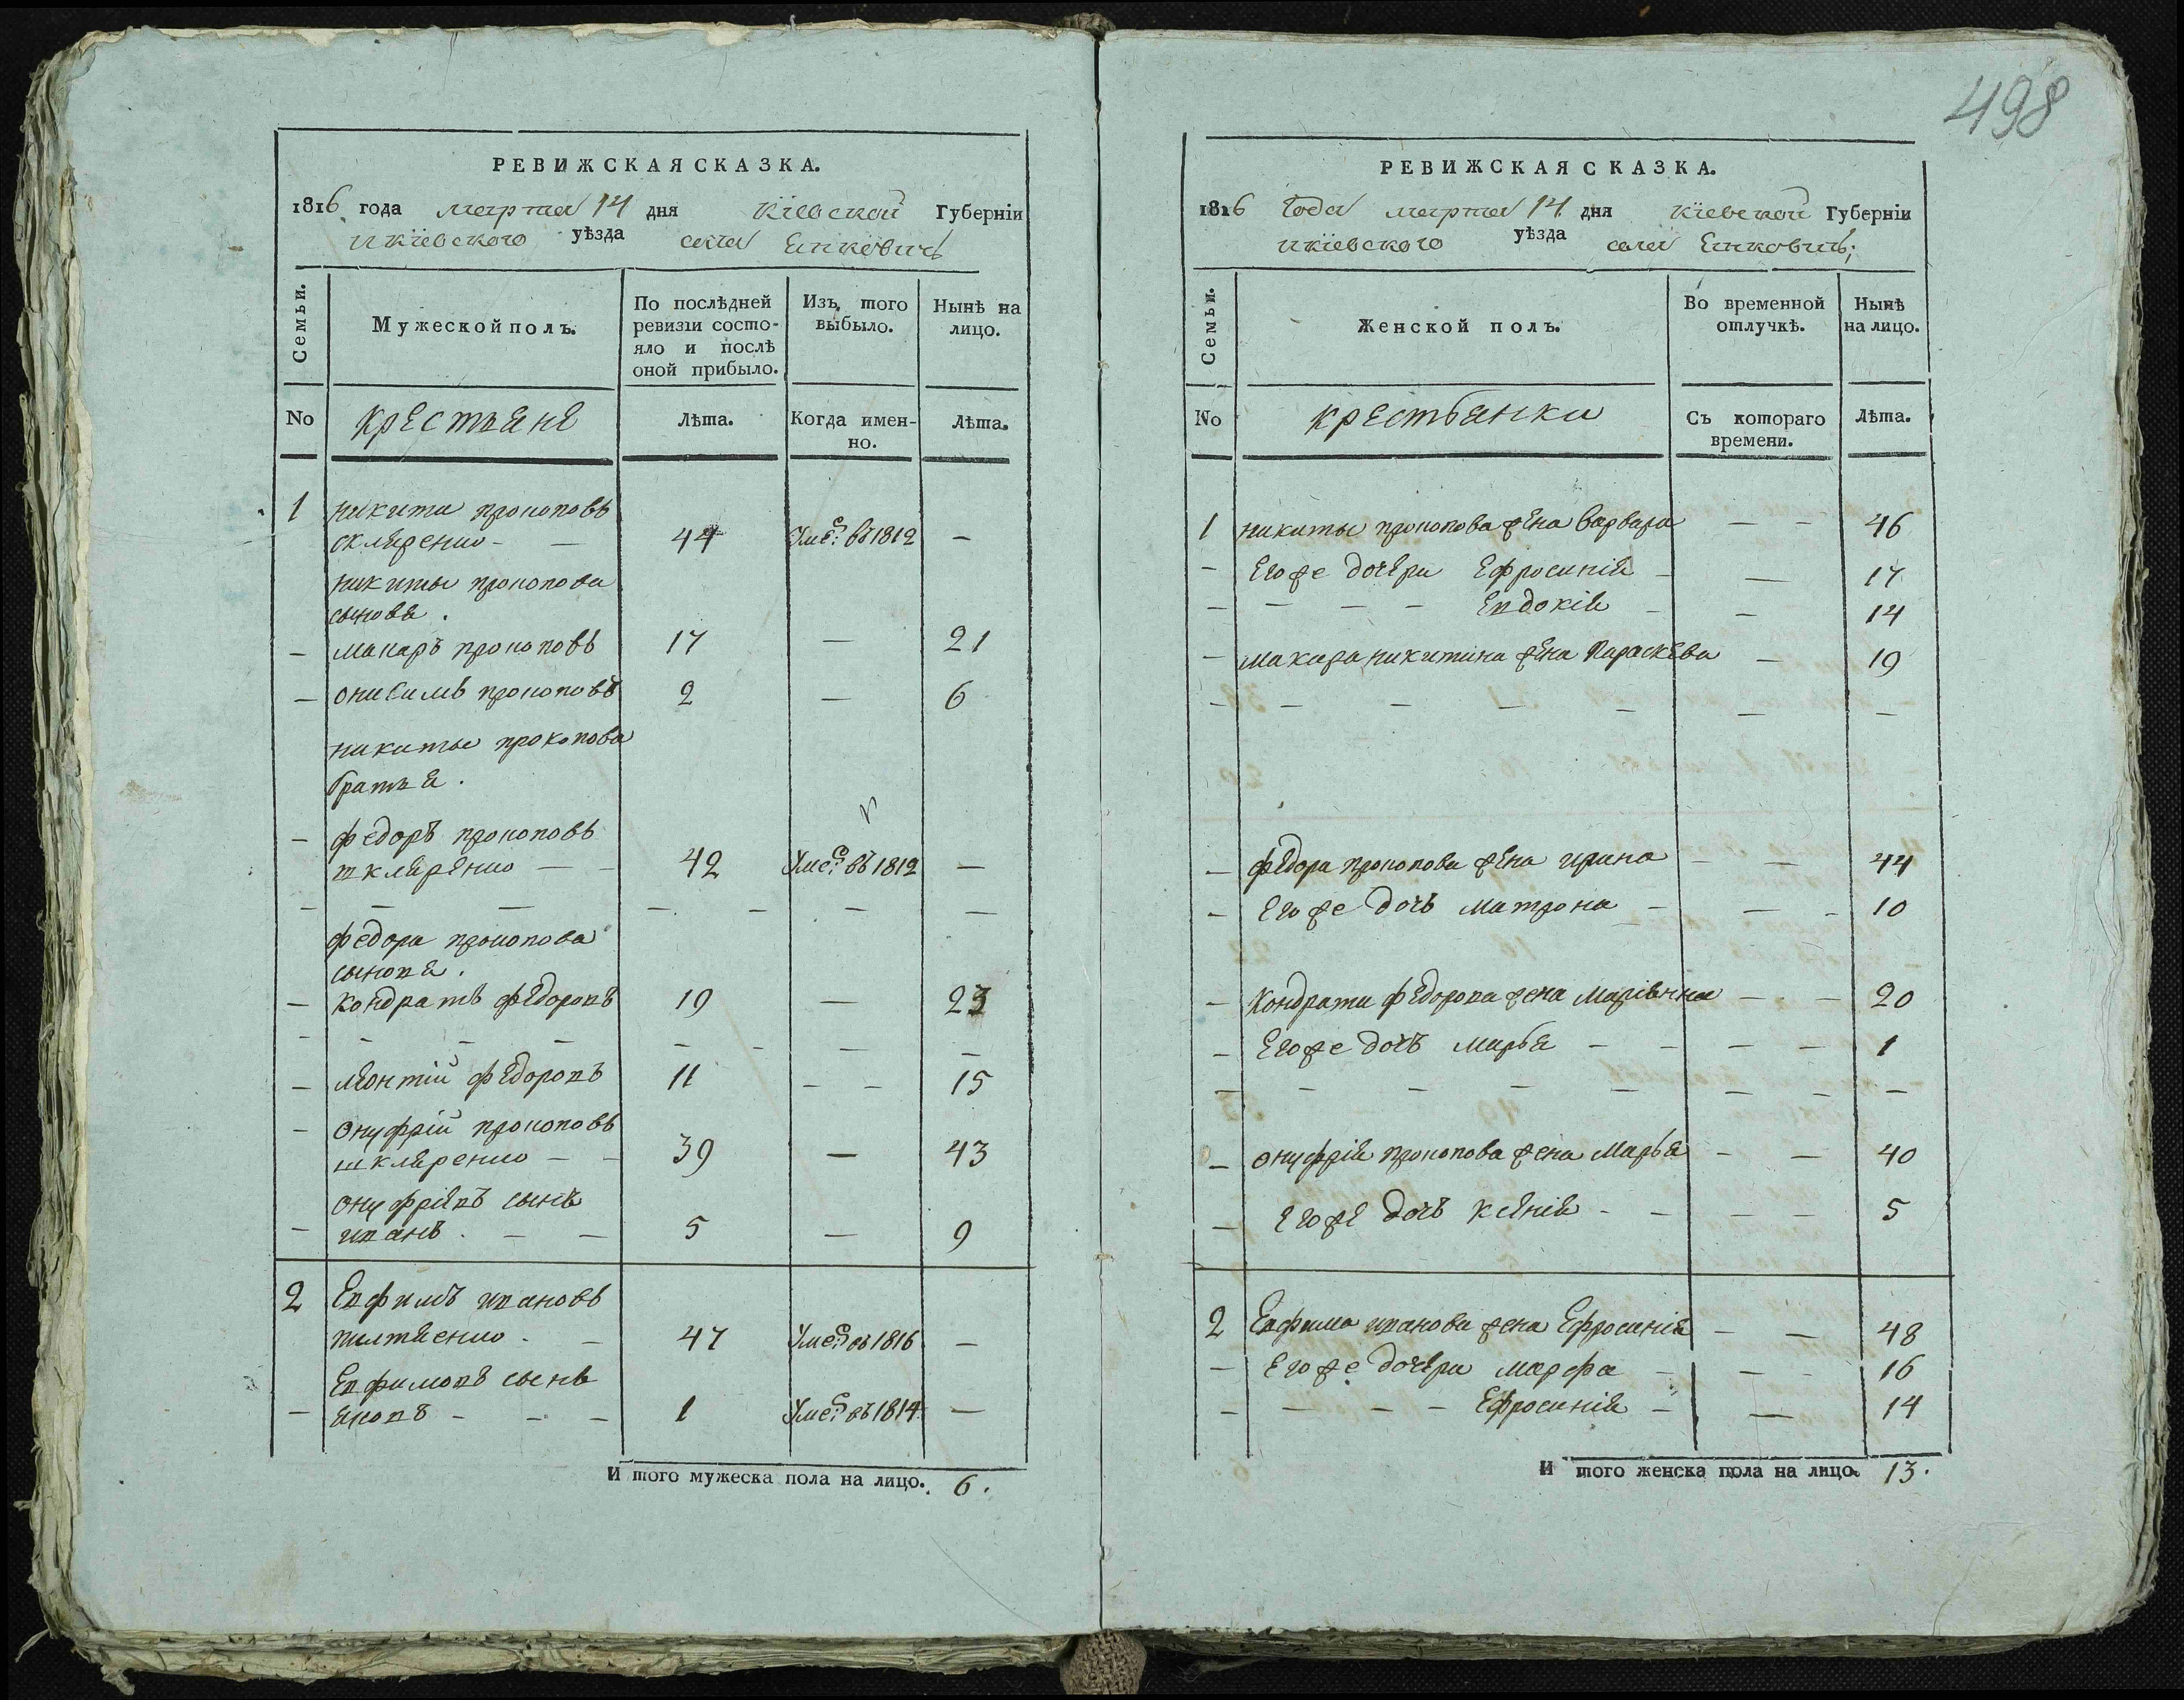 498
РЕВИЖСКАЯ СКАЗКА.
1816 года марта 14 дня Кіевской Губерніи
и кіевского уѣзда села Янковичь
Семьи.
Мужеской полъ.
По послѣдней ревизіи состо-
яло и послѣ
оной прибыло.
Изъ того
выбыло.
Нынѣ на
лицо.
No
крестьяне
Лѣта.
Когда имен-
но.
Лѣта.
1 никита прокоповъ
скляренко - — 44 Умеръ въ 1812 —
никиты прокопова
сыновя.
— макаръ прокоповъ 17 — 21
— онисимъ прокоповъ 2 — 6
никиты прокопова
братья.
— федоръ прокоповъ
шкляренко — - 42 Умеръ въ 1812 —
федора прокопова
сыновя.
— кондратъ федоровъ 19 — 23
— леонтій федоровъ 11 - - 15
- онуфрій прокоповъ
шкляренко — - 39 — 43
онуфріевъ сынъ
- иванъ. — — 5 — 9
2 Евфимъ ивановъ
- — 47 Умеръ въ 1816 —
Евфимовъ сынъ
— яковъ - - - 1 Умеръ въ 1814 —
И того мужеска пола на лицо. 6.
РЕВИЖСКАЯ СКАЗКА.
1816 Года марта 14 дня кіевской Губерніи
и кіевского уѣзда села Янковичь;
Семьи.
Женской полъ.
Во временной
отлучкѣ.
Нынѣ
на лицо.
No
крестьянки
Съ котораго
времени.
Лѣта.
1 никиты прокопова жена варвара — - 46
- Его же дочери Ефросинія - — 17
- - - - Евдокія - — 14
- макара никитина жена Параскева — 19
— федора прокопова жена ирина - — 44
— Его же дочь матрона - — - 10
— Кондрата федорова жена Маріянна — - — 20
— Его же дочь марья - - — — 1
— онуфрія прокопова жена Марья - — 40
— Его же дочь ксенія - - — — 5
2 Евфима иванова жена Ефросинія - — 48
- Его же дочери марфа - — - 16
- - - - Ефросинія - — 14
И того женска пола на лицо. 13.